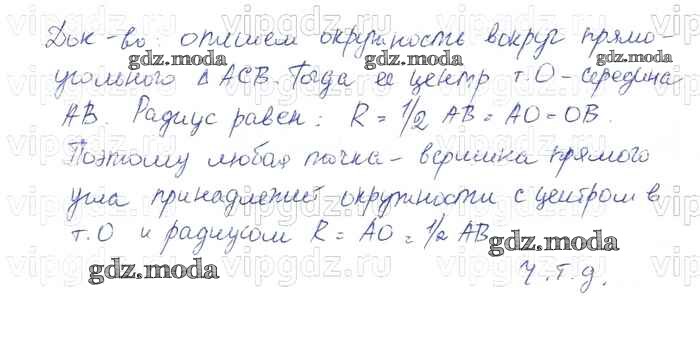 Док-во: опишем окружность вокруг прямо-
угольного Δ ACB. Тогда ее центр т. O - середина
AB. Радиус равен: R = 1/2 AB = AO = OB.
Поэтому любая точка - вершина прямого
угла принадлежит окружности с центром в
т. O и радиусом R = AO = 1/2 AB
Ч.т.д.